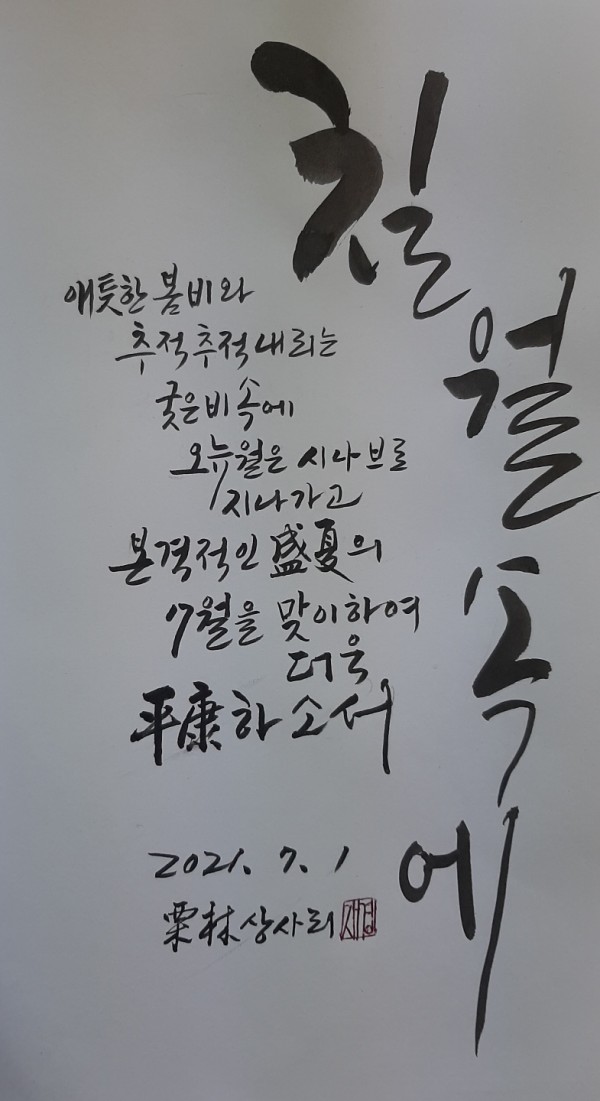 칠월 속에
애틋한 봄비와
추적추적 내리는
궂은비 속에
오뉴월은 시나브로
지나가고
본격적인 盛夏의
7월을 맞이하여
더욱
平康하소서
2021. 7. 1
栗林 상사리